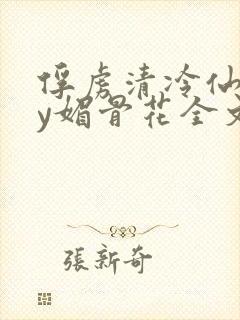 俘虏清冷仙
y媚骨花全文
張新奇